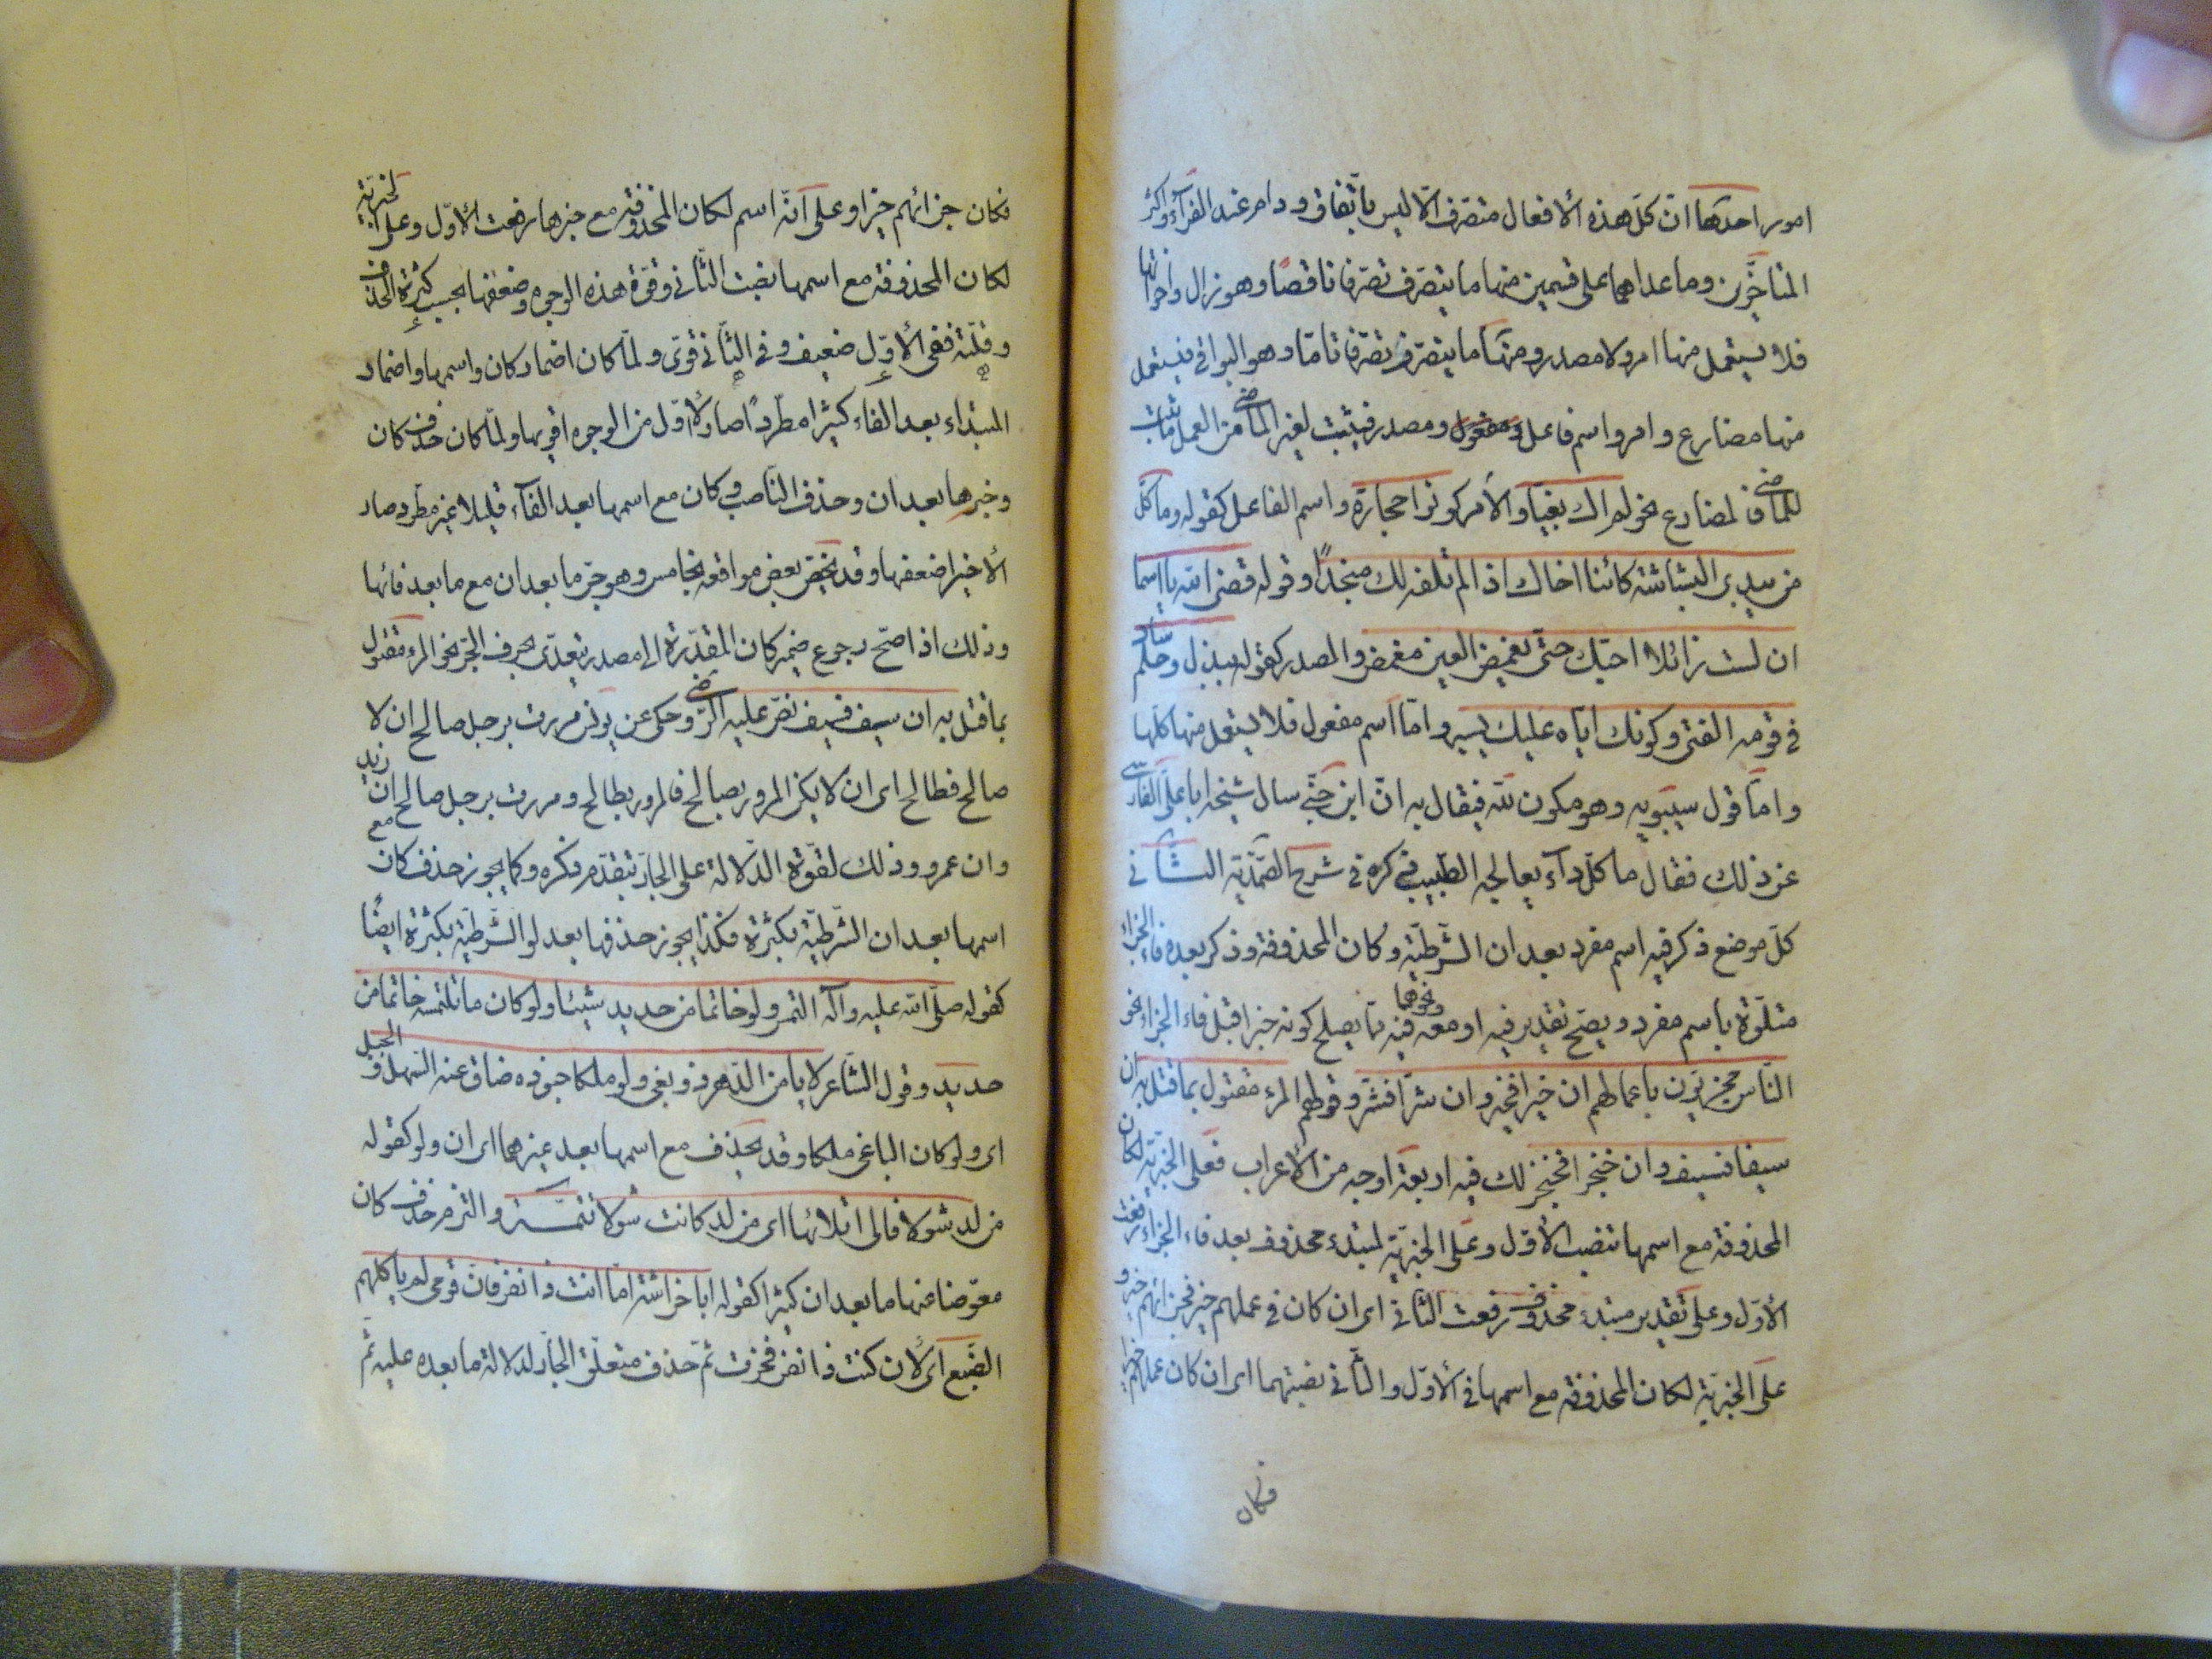 امور احدها انّ كلّ هذه الأفعال متصرّف الّا ليس باتّفاق ودام عند الفرّآء واكثر
المتاخّرين وما عداهما على قسمين منها ما يتصرّف تصرّفا ناقصًا وهو زال واخواتها
فلا يستعمل منها امر ولا مصدر ومنها ما يتصرّف تصرّفا تامّا وهو البواقى فيستعمل
منها مضارع وامر واسم فاعل ومفعول ومصدر فيثبت لغير الماضى من العمل ماثبت
للماضى فالمضارع نحو لم اك بغيّا والأمر كونوا حجارة واسم الفاعل كقوله وما كلّ
من يبدى البشاشة كائنا اخاك اذا لم تلفه لك منجدًا وقوله قضى الله يا اسما
ان لست زائلا احبّك حتّى يغمض العين مغمض والمصدر كقوله ببذل وحلم ساد
فى قومه الفتى وكونك ايّاه عليك يسير وامّا اسم مفعول فلا يستعمل منها كلّها
وامّا قول سيبويه وهو مكون لله فيقال به انّ ابن جنّى سال شيخه ابا على الفارسى
عن ذلك فقال ما كلّ دآء يعالجه الطّبيب ذكره فى شرح الصّمديّه الثّانى
كلّ موضع ذكر فيه اسم مفرد بعد ان الشّرطيّة وكان المحذوفة وذكر بعده فاء الجزاء
متلوّة باسم مفرد ويصحّ تقدير فيه او معه ونحوهما فيه ممّا يصلح كونه خبرا قبل فاء الجزاء نحو
النّاس مجزيّون باعمالهم ان خيرا فخير وان شرّا فشرّ وقولهم المرء مقتول بما قتل به ان
سيفا فسيف وان خنجرا فخنجر لك فيه اربعة اوجه من الأعراب فعلى الخبريّة لكان
المحذوفة مع اسمها تنصب الأوّل وعلى الخبريّة لمبتدء محذوف بعد فاء الجزاء رفعت
الأوّل وعلى تقدير مبتدء محذوف رفعت الثّانى اى ان كان فى عملهم خير فجزائهم خير و
على الخبريّة لكان المحذوفة مع اسمها فى الأوّل والثّانى نصبتهما اى ان كان عملهم خيرا
فكان
فكان جزائهم خيرا وعلى انّه اسم لكان المحذوفة مع خبرها رفعت الأوّل وعلى الخبريّة
لكان المحذوفة مع اسمها نصبت الثّانى وقوّة هذه الوجوه وضعفها بحسب كثرة الحذف
وقلّته ففى الأوّل ضعيف وفى الثّانى قوىّ ولمّا كان اضمار كان واسمها واضمار
المبتداء بعد الفاء كثيرا مطّردًا صار الأوّل من الوجوه اقويها ولمّا كان حذف كان
وخبرها بعد ان وحذف النّاصب وكان مع اسمها بعد الفآء قليلا غير مطّرد صار
الأخير اضعفها وقد يختصّ بعض مواقعه بخامس وهو جرّ ما بعد ان مع ما بعد فائها
وذلك اذا صحّ رجوع ضمير كان المقدّرة الى مصدر يتعدّى بحرف الجرّ نحو المرء مقتول
بما قتل به ان سيف فسيف نصّ عليه الرّضى وحكى عن يونس مررت برجل صالح ان لا
صالح فطالح اى ان لا يكن المرور بصالح فالمرور بطالح ومررت برجل صالح ان زيد
وان عمرو وذلك لقوّة الدّلالة على الجارّ بتقدّم ذكره وكما يجوز حذف كان مع
اسمها بعد ان الشّرطيّة بكثرة فكذا يجوز حذفها بعد لو الشّرطيّة بكثرة ايضًا
كقوله صلّى الله عليه وآله التمس ولو خاتما من حديد شيئا ولو كان ما تلتمسه خاتما من
حديد وقول الشّاعر لا يامن الدّهر ذو بغى ولو ملكا جنوده ضاق عنها السّهل والجبل
اى ولو كان الباغى ملكا وقد يحذف مع اسمها بعد غيرهما اى ان ولو كقوله
من لد شولا فالى اتلائها اى من لد كانت شولا تتمّة والتزم حذف كان
معوّضا عنها ما بعد ان كثيرا كقوله ابا خراشة امّا انت ذا نفر فانّ قومى لم ياكلهم
الضّبع اى لأن كنت ذا نفر فخرت ثمّ حذف متعلّق الجارّ لدلالة ما بعده عليه ثمّ